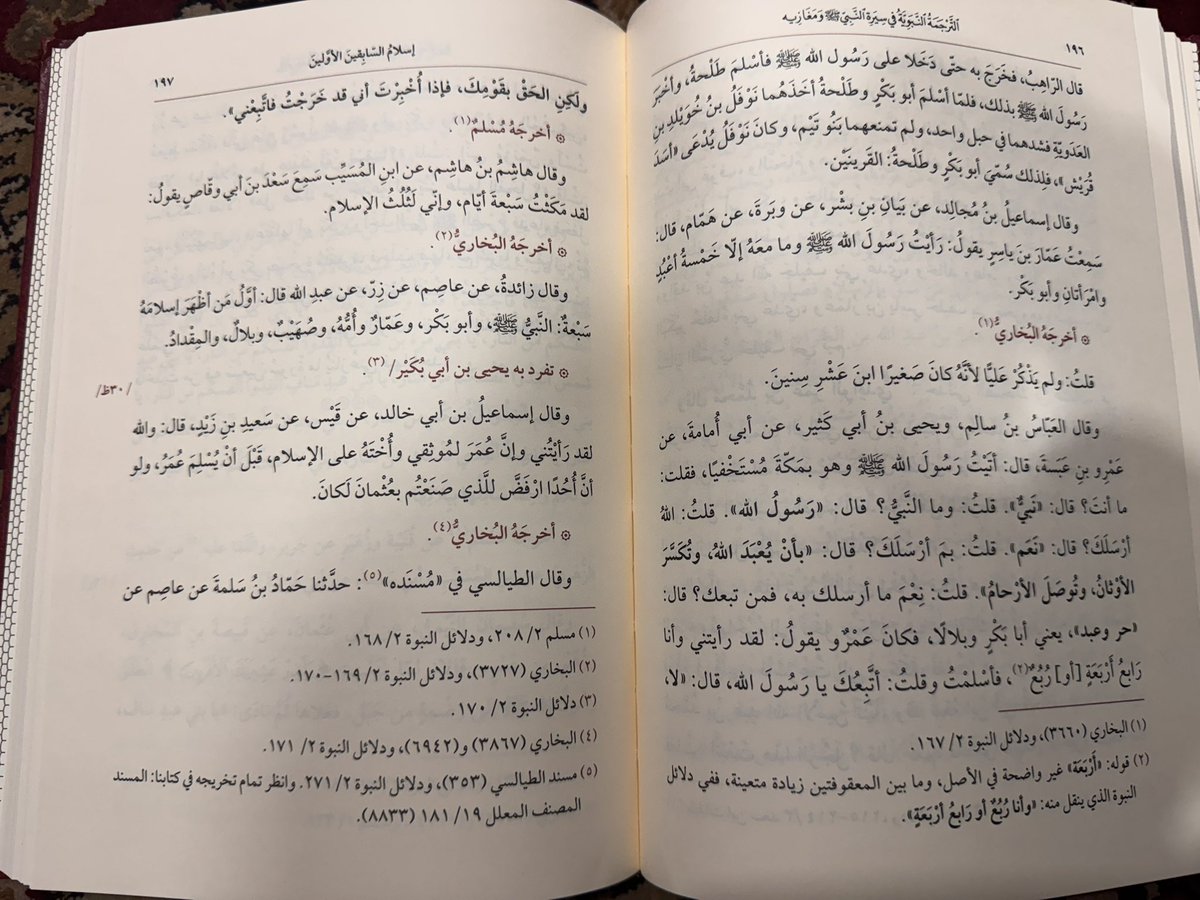 التَّرْجَمَةُ النَّبَوِيَّةُ في سِيرَةِ النَّبِيِّ ﷺ وَمَغَازِيه
١٩٦
قال الرّاهِبُ، فخَرَجَ به حتّى دَخَلا على رَسُول الله ﷺ فأسْلمَ طَلْحةُ، وأخبَرَ
رَسُولَ الله ﷺ بذلك، فلمّا أسْلمَ أبو بَكْرٍ وطَلْحةُ أخَذَهُما نَوْفَلُ بنُ خُوَيْلدِ بنِ
العَدَويّةِ فشدهما في حبل واحد، ولم تمنعهما بَنُو تَيْم، وكانَ نَوْفَلُ يُدْعَى «أسَدَ
قُرَيْش»، فلِذلك سُمّيَ أبو بَكْرٍ وطَلْحةُ: القَرينَيْن.
وقال إسماعيلُ بنُ مُجالِد، عن بَيَانِ بنِ بشْر، عن وبَرةَ، عن هَمّام، قال:
سَمِعْتُ عَمّارَ بنَ ياسِر يقولُ: رَأيْتُ رَسُولَ الله ﷺ وما معَهُ إلّا خَمْسةُ أعْبُدٍ
وامْرَأتانِ وأبو بَكْر.
۞ أخرجَهُ البُخاريُّ(١).
قلتُ: ولم يَذْكُرْ عَليًّا لأنَّهُ كانَ صَغيرًا ابنَ عَشْرِ سِنينَ.
وقال العَبّاسُ بنُ سالِم، ويحيى بنُ أبي كَثير، عن أبي أُمامةَ، عن
عَمْرِو بنِ عبَسَةَ، قال: أتَيْتُ رَسُولَ الله ﷺ وهو بمَكّةَ مُسْتَخْفيًا، فقلت:
ما أنتَ؟ قال: «نَبيٌّ». قلتُ: وما النَّبيُّ؟ قال: «رَسُولُ الله». قلتُ: اللهُ
أرْسَلَكَ؟ قال: «نَعَم». قلتُ: بمَ أرْسَلَكَ؟ قال: «بأنْ يُعْبَدَ اللهُ، وتُكَسَّرَ
الأوْثانُ، وتُوصَلَ الأرْحامُ». قلتُ: نِعْمَ ما أرسلك به، فمن تبعك؟ قال:
«حر وعبد»، يعني أبا بَكْرٍ وبلالًا، فكانَ عَمْرٌو يقولُ: لقد رأيتني وأنا
رَابعُ أرْبَعَةٍ [أو] رُبُعٌ(٢)، فأسْلمْتُ وقلتُ: أتَّبِعُكَ يا رَسُولَ الله، قال: «لا،
(١) البخاري (٣٦٦٠)، ودلائل النبوة ٢/ ١٦٧.
(٢) قوله: «أرْبَعَة» غير واضحة في الأصل، وما بين المعقوفتين زيادة متعينة، ففي دلائل
النبوة الذي ينقل منه: «وأنا رُبُعٌ أو رَابعُ أرْبَعَةٍ».
إسلامُ السّابِقينَ الأوّلينَ
١٩٧
ولَكِنِ الحَقْ بقَوْمِكَ، فإذا أُخْبِرْتَ أني قد خَرَجْتُ فاتَّبِعْني».
۞ أخرجَهُ مُسْلم(١).
وقال هاشِمُ بنُ هاشِم، عن ابنِ المُسَيِّب سَمِعَ سَعْدَ بنَ أبي وقّاصٍ يقولُ:
لقد مَكَثْتُ سَبْعةَ أيّام، وإنّي لَثُلُثُ الإسلام.
۞ أخرجَهُ البُخاريُّ(٢).
وقال زائدةُ، عن عاصِم، عن زِرّ، عن عبدِ الله قال: أوَّلُ مَن أظْهَرَ إسلامَهُ
سَبْعةٌ: النَّبيُّ ﷺ، وأبو بَكْر، وعَمّارٌ وأُمُّهُ، وصُهَيْبٌ، وبلالٌ، والمِقْدادُ.
۞ تفرد به يحيى بن أبي بُكَيْر/ (٣)
/٣٠ظ/
وقال إسماعيلُ بن أبي خالد، عن قَيْس، عن سَعيدِ بنِ زَيْدٍ، قال: والله
لقد رَأيْتُني وإنَّ عُمَرَ لمُوثِقي وأُخْتَهُ على الإسلام، قَبْلَ أنْ يُسْلِمَ عُمَرُ، ولو
أنَّ أُحُدًا ارْفَضَّ للَّذي صَنَعْتُم بعُثْمانَ لَكانَ.
۞ أخرجَهُ البُخاريُّ(٤).
وقال الطيالسي في «مُسْنَده»(٥): حدَّثنا حَمّادُ بنُ سَلمةَ عن عاصِم عن
(١) مسلم ٢/ ٢٠٨، ودلائل النبوة ٢/ ١٦٨.
(٢) البخاري (٣٧٢٧)، ودلائل النبوة ٢/ ١٦٩-١٧٠.
(٣) دلائل النبوة ٢/ ١٧٠.
(٤) البخاري (٣٨٦٧) و(٦٩٤٢)، ودلائل النبوة ٢/ ١٧١.
(٥) مسند الطيالسي (٣٥٣)، ودلائل النبوة ٢/ ٢٧١. وانظر تمام تخريجه في كتابنا: المسند
المصنف المعلل ١٩/ ١٨١ (٨٨٣٣).